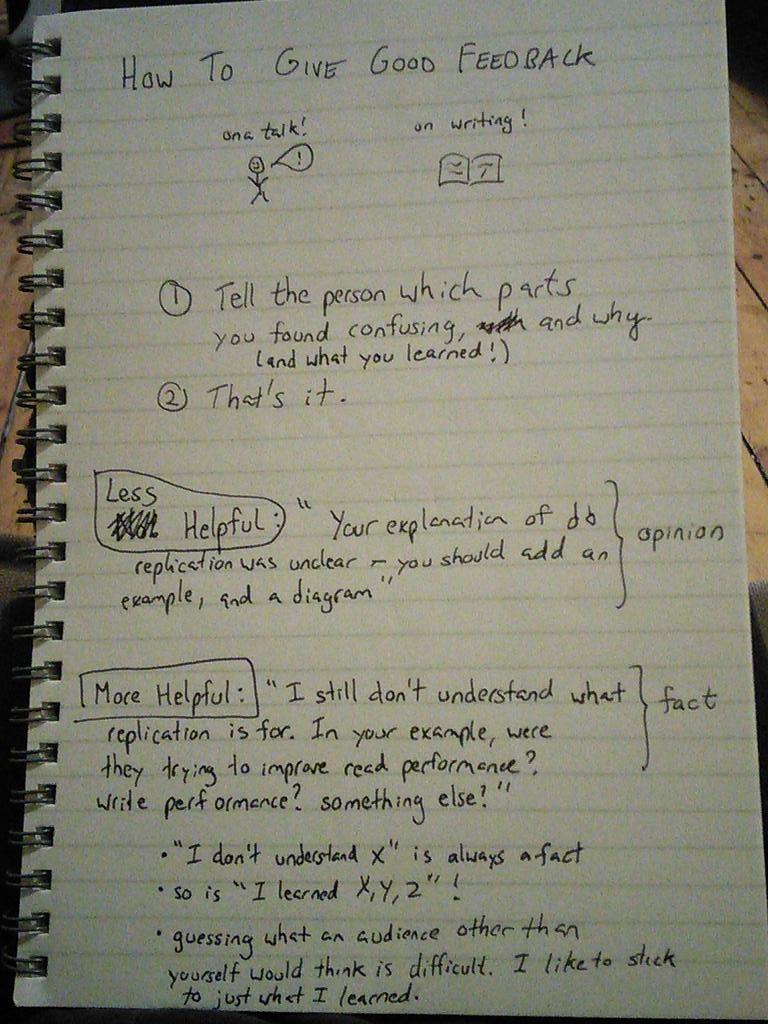 HOW TO GIVE GOOD FEEDBACK
on a talk! on writing!
!
① Tell the person which parts
you found confusing, and why.
(and what you learned!)
② That's it.
Less
Helpful: " Your explanation of db
replication was unclear – you should add an
example, and a diagram"
opinion
More Helpful: "I still don't understand what
replication is for. In your example, were
they trying to improve read performance?
write performance? something else?"
fact
• "I don't understand X" is always a fact
• so is "I learned X, Y, Z"!
• guessing what an audience other than
yourself would think is difficult. I like to stick
to just what I learned.